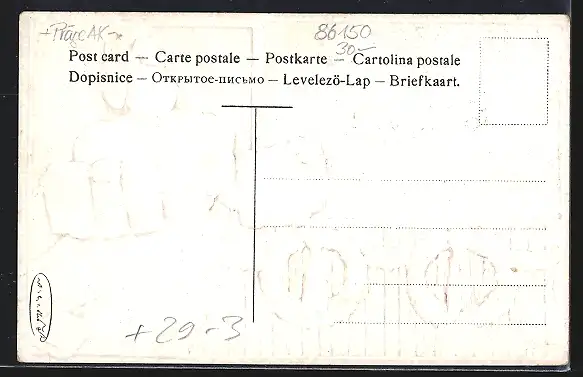 + Präge AK -
86150
30.-
Post card — Carte postale — Postkarte — Cartolina postale
Dopisnice — Открытое-письмо — Levelező-Lap — Briefkaart.
+ 29 - 3